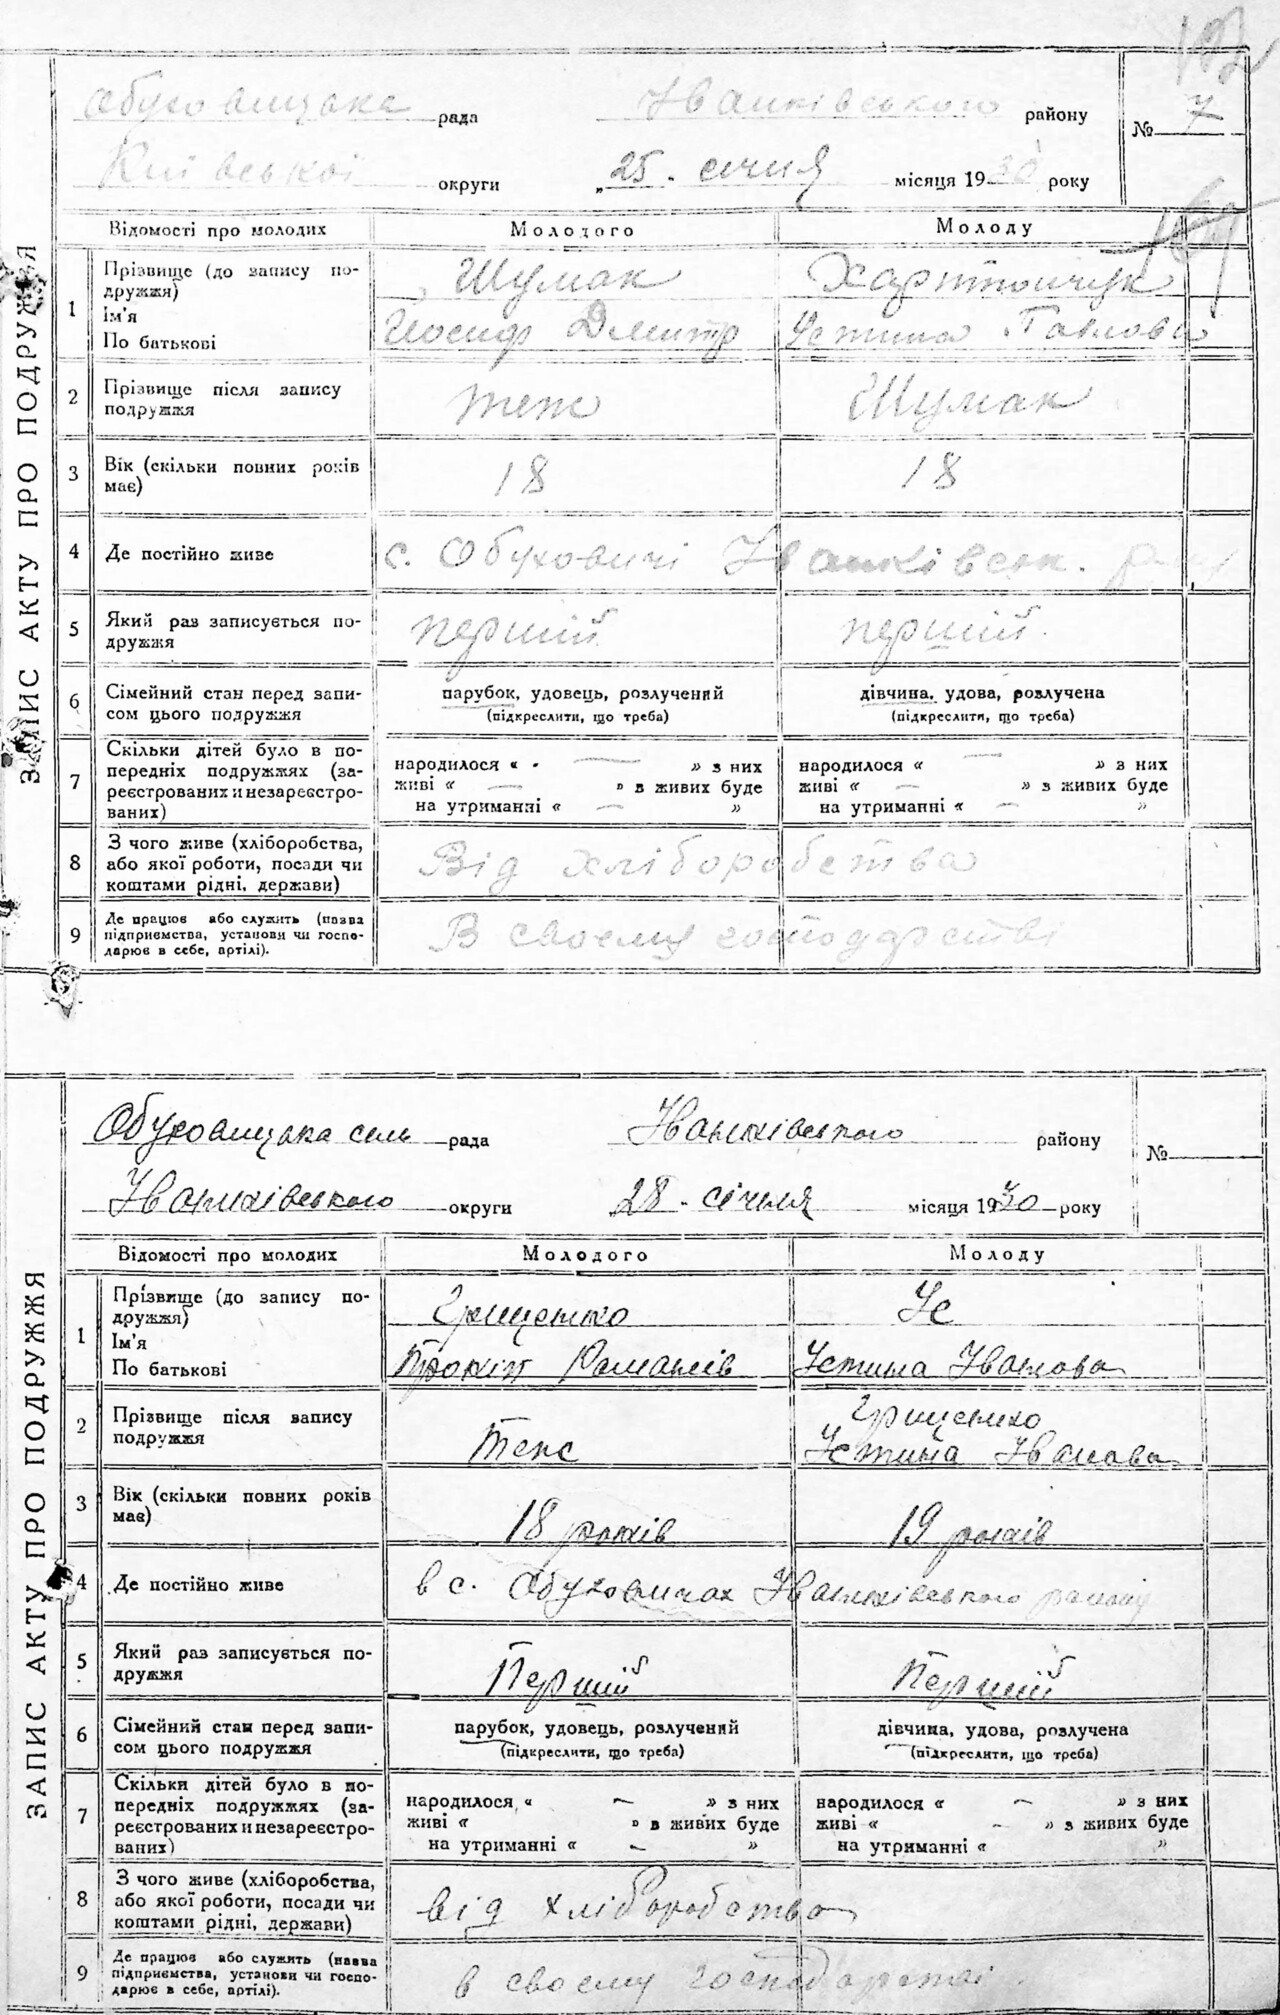 Обуховицька рада Іванківського району
№ 7
Київської округи „25 - січня місяця 1930 року
ЗАПИС АКТУ ПРО ПОДРУЖЖЯ
Відомості про молодих Молодого Молоду
1 Прізвище (до запису по- Шумак Харитончук
дружжя)
Ім'я Йосиф Дмитр Устина Павлова
По батькові
2 Прізвище після запису теж Шумак
подружжя
3 Вік (скільки повних років 18 18
має)
4 Де постійно живе с. Обуховичі Іванківськ.
5 Який раз записується по- перший перший
дружжя
6 Сімейний стан перед запи- парубок, удовець, розлучений дівчина, удова, розлучена
сом цього подружжя (підкреслити, що треба) (підкреслити, що треба)
7 Скільки дітей було в по- народилося « — » з них народилося « — » з них
передніх подружжях (за- живі « — » в живих буде живі « — » з живих буде
реєстрованих и незареєстро- на утриманні « — » на утриманні « — »
ваних)
8 З чого живе (хліборобства, Від хліборобства
або якої роботи, посади чи
коштами рідні, держави)
9 Де працює або служить (назва В своєму господарстві
підприємства, установи чи госпо-
дарює в себе, артілі).
Обуховицька сель рада Іванківського району
№
Іванківського округи 28 - січня місяця 1930 року
ЗАПИС АКТУ ПРО ПОДРУЖЖЯ
Відомості про молодих Молодого Молоду
1 Прізвище (до запису по- Грищенко Ус
дружжя)
Ім'я Прокіп Романів Устина Іванова
По батькові
2 Прізвище після запису Теж Грищенко
подружжя Устина Іванова
3 Вік (скільки повних років 18 років 19 років
має)
4 Де постійно живе в с. Обуховичах Іванківського району
5 Який раз записується по- Перший Перший
дружжя
6 Сімейний стан перед запи- парубок, удовець, розлучений дівчина, удова, розлучена
сом цього подружжя (підкреслити, що треба) (підкреслити, що треба)
7 Скільки дітей було в по- народилося « — » з них народилося « — » з них
передніх подружжях (за- живі « » в живих буде живі « — » з живих буде
реєстрованих и незареєстро- на утриманні « — » на утриманні « »
ваних)
8 З чого живе (хліборобства, від хліборобства
або якої роботи, посади чи
коштами рідні, держави)
9 Де працює або служить (назва в своєму господарстві
підприємства, установи чи госпо-
дарює в себе, артілі).